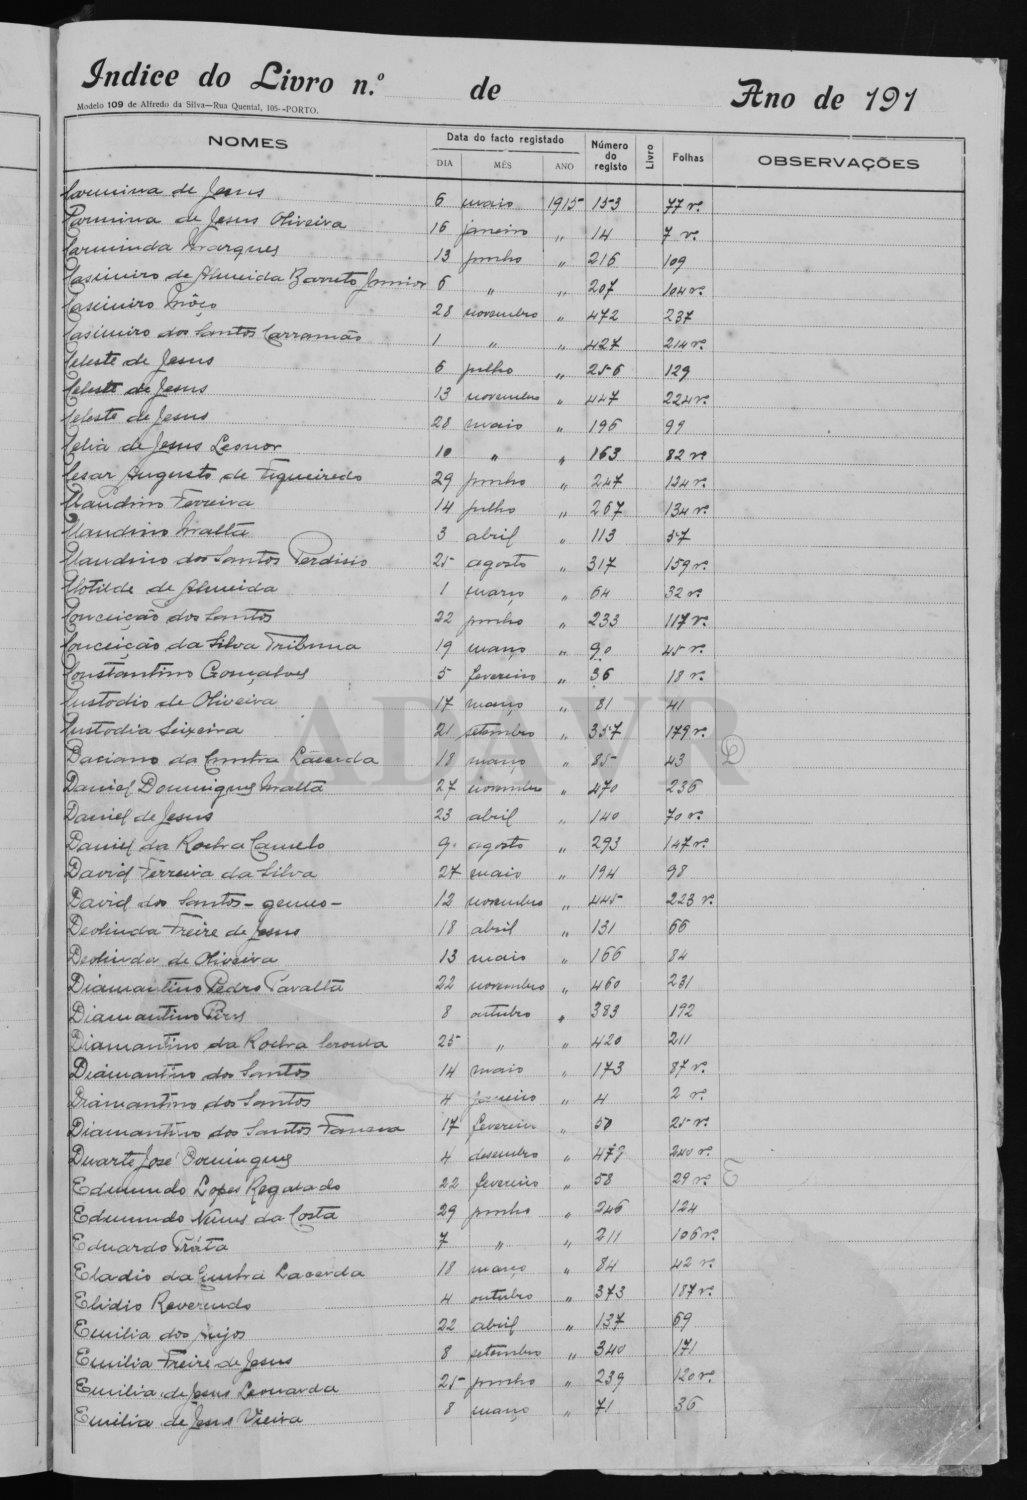 Indice do Livro n.º de Ano de 191
Modelo 109 de Alfredo da Silva—Rua Quental, 105--PORTO.
NOMES Data do facto registado Número do registo Livro Folhas OBSERVAÇÕES
DIA MÊS ANO
Carmina de Jesus 6 maio 1915 153 77 v.
Carmina de Jesus Oliveira 16 janeiro " 14 7 v.
Carminda Marques 13 junho " 216 109
Casimiro de Almeida Barreto Junior 6 " " 207 104 v.
Casimiro Môço 28 novembro " 472 237
Casimiro dos Santos Carramão 1 " " 427 214 v.
Celeste de Jesus 6 julho " 256 129
Celeste de Jesus 13 novembro " 447 224 v.
Celeste de Jesus 28 maio " 196 99
Celia de Jesus Leonor 10 " " 163 82 v.
Cesar Augusto de Figueiredo 29 junho " 247 124 v.
Claudino Ferreira 14 julho " 267 134 v.
Claudino Malta 3 abril " 113 57
Claudino dos Santos 25 agosto " 317 159 v.
Clotilde de Almeida 1 março " 64 32 v.
Conceição dos Santos 22 junho " 233 117 v.
Conceição da Silva Tribuna 19 março " 90 45 v.
Constantino Gonçalves 5 fevereiro " 36 18 v.
Custodio de Oliveira 17 março " 81 41
Custodia Seixeira 21 setembro " 357 179 v.
D
Daciano da Cunha Lacerda 18 março " 85 43
Daniel Domingues Malta 27 novembro " 470 236
Daniel de Jesus 23 abril " 140 70 v.
Daniel da Rocha Camelo 9 agosto " 293 147 v.
David Ferreira da Silva 27 maio " 194 98
David dos Santos - gemeo - 12 novembro " 445 223 v.
Deolinda Freire de Jesus 18 abril " 131 66
Deolinda de Oliveira 13 maio " 166 84
Diamantino Pedro Tavalta 22 novembro " 460 231
Diamantino Pires 8 outubro " 383 192
Diamantino da Rocha 25 " " 420 211
Diamantino dos Santos 14 maio " 173 87 v.
Diamantino dos Santos 4 janeiro " 4 2 v.
Diamantino dos Santos 17 fevereiro " 50 25 v.
Duarte José Domingues 4 desembro " 479 240 v.
E
Edmundo Lopes Regalado 22 fevereiro " 58 29 v.
Edmundo Nunes da Costa 29 junho " 246 124
Eduardo Tróta 7 " " 211 106 v.
Eladio da Cunha Lacerda 18 março " 84 42 v.
Elidio Reverendo 4 outubro " 373 187 v.
Emilia dos Anjos 22 abril " 137 69
Emilia Freire de Jesus 8 setembro " 340 171
Emilia de Jesus Leonarda 25 junho " 239 120 v.
Emilia de Jesus Vieira 8 março " 71 36
ADAVR